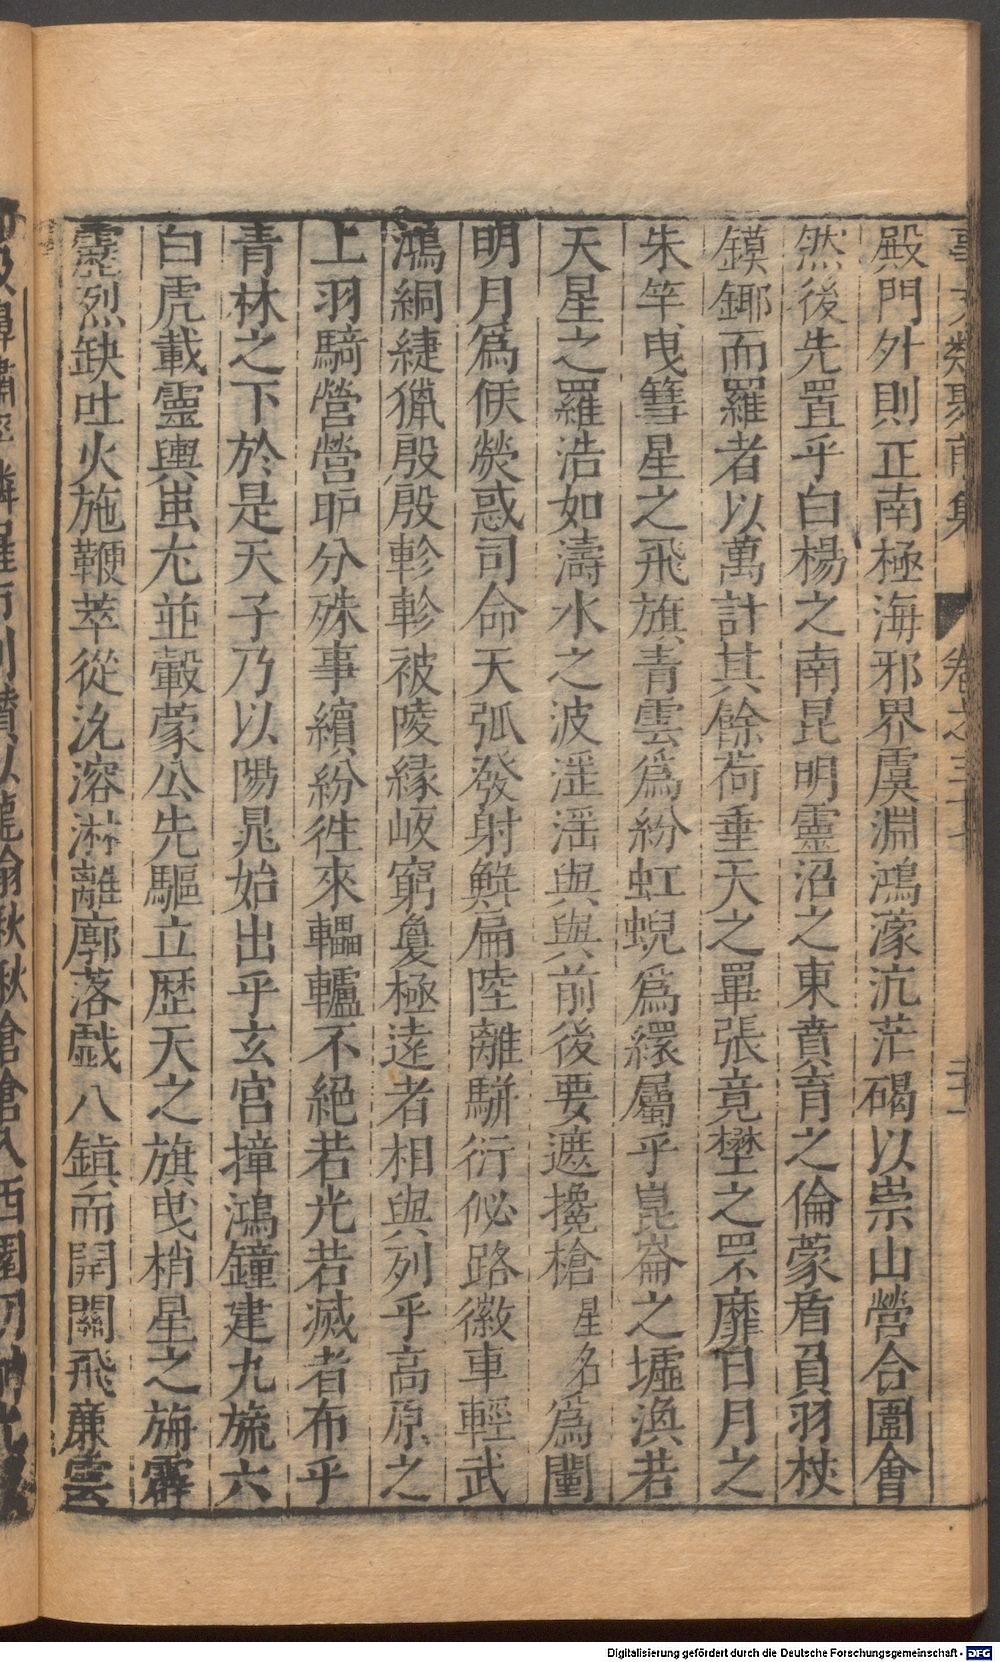 事文類聚前集 卷之三十七
殿門外則正南極海邪界虞淵鴻濛沆茫碣以崇山營合圍會
然後先置乎白楊之南昆明靈沼之東賁育之倫蒙盾負羽杖
鏌鎁而羅者以萬計其餘荷垂天之畢張竟壄之罘靡日月之
朱竿曳彗星之飛旗青雲爲紛虹蜺爲繯屬乎崑崙之墟渙若
天星之羅浩如濤水之波淫淫與與前後要遮攙槍星名爲闉
明月爲候熒惑司命天弧發射鮮扁陸離駢衍佖路徽車輕武
鴻絧緁獵殷殷軫軫被陵緣岅窮夐極遠者相與列乎高原之
上羽騎營營昈分殊事繽紛徃來轠轤不絕若光若滅者布乎
青林之下於是天子乃以陽晁始出乎玄宮撞鴻鐘建九旒六
白虎載靈輿蚩尤並轂蒙公先驅立歷天之旗曳梢星之旃霹
靂烈缺吐火施鞭萃從沇溶淋離廓落戲八鎮而開關飛廉雲